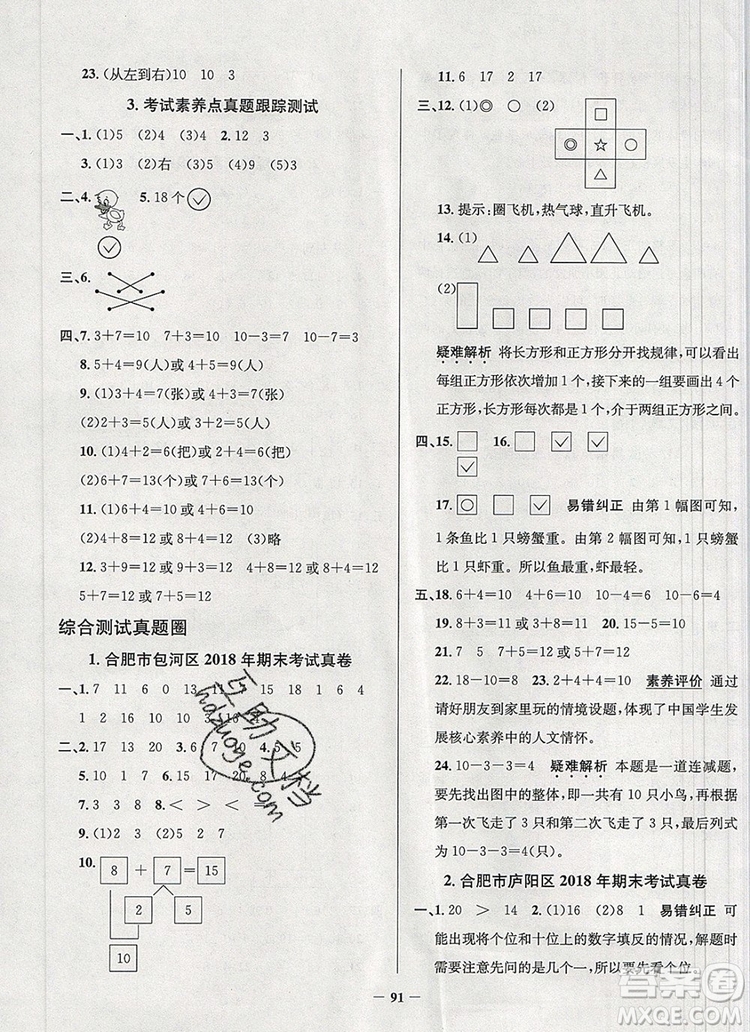 23.(从左到右)10 10 3
3. 考试素养点真题跟踪测试
一、1.(1)5 (2)4 (3)4 2.12 3
3.(1)5 (2)右 (3)5 (4)9 (5)3
二、4. 5.18个
三、6.
四、7.3+7=10 7+3=10 10-3=7 10-7=3
8.5+4=9(人)或4+5=9(人)
9.(1)3+4=7(张)或4+3=7(张)
(2)2+3=5(人)或3+2=5(人)
10.(1)4+2=6(把)或2+4=6(把)
(2)7+6=13(个)或6+7=13(个)
11.(1)6+4=10或4+6=10
(2)4+8=12或8+4=12 (3)略
12.3+9=12 9+3=12 4+8=12
5+7=12或7+5=12
综合测试真题圈
1. 合肥市包河区2018年期末考试真卷
一、1.7 11 6 0 13 4 18 15 1 6 4
1 2 16 10
二、2.17 20 13 3.6 7 9 10 4.5 5
5.10 15 20 6.17 20 8 4
7.3 3 8 8.< > < >
9.(1)2 (2)5 (3)5 2 7
10. 8 + 7 = 15
2 5
10
11.6 17 10 7
三、12.(1)◎ (2) □
◎ ☆ □
△
13. 提示:圈飞机,热气球,直升飞机。
14.(1)
△ △ △ △ △
(2)
□ □ □ □ □
疑难解析 将长方形和正方形分开找规律,可以看出
每组正方形依次增加1个,接下来的一组要画出4个
正方形,长方形每次都是1个,介于两组正方形之间。
四、15. □ 16. □ ✓
✓
17. ○ □ ✓ 易错纠正 由第1幅图可知,
1条鱼比1只螃蟹重。由第2幅图可知,1只螃蟹比
1只虾重。所以鱼最重,虾最轻。
五、18.6+4=10 19.10-8=2 20.3+8=11
8+3=11
21.7 5 7+5=12 5+7=12
22.18-10=8 23.2+4=6 素养评价 通过
请好朋友到家里玩的情境设题,体现了中国学生发
展核心素养中的人文情怀。
24.10-3-3=4 疑难解析 本题是一道连减题,
要先找出图中的整体,即一共有10只小鸟,再根据
第一次飞走了3只和第二次飞走了3只,最后列式
为10-3-3=4(只)。
2. 合肥市庐阳区2018年期末考试真卷
一、1.20 > 14 2.(1)16 (2)8 1 易错纠正 可
能出现将个位和十位上的数字填反的情况,解题时
需要注意先问的是几个一,所以要先看个位
— 91 —
互助文档
hdzuoye.com
答案圈
MXQE.COM